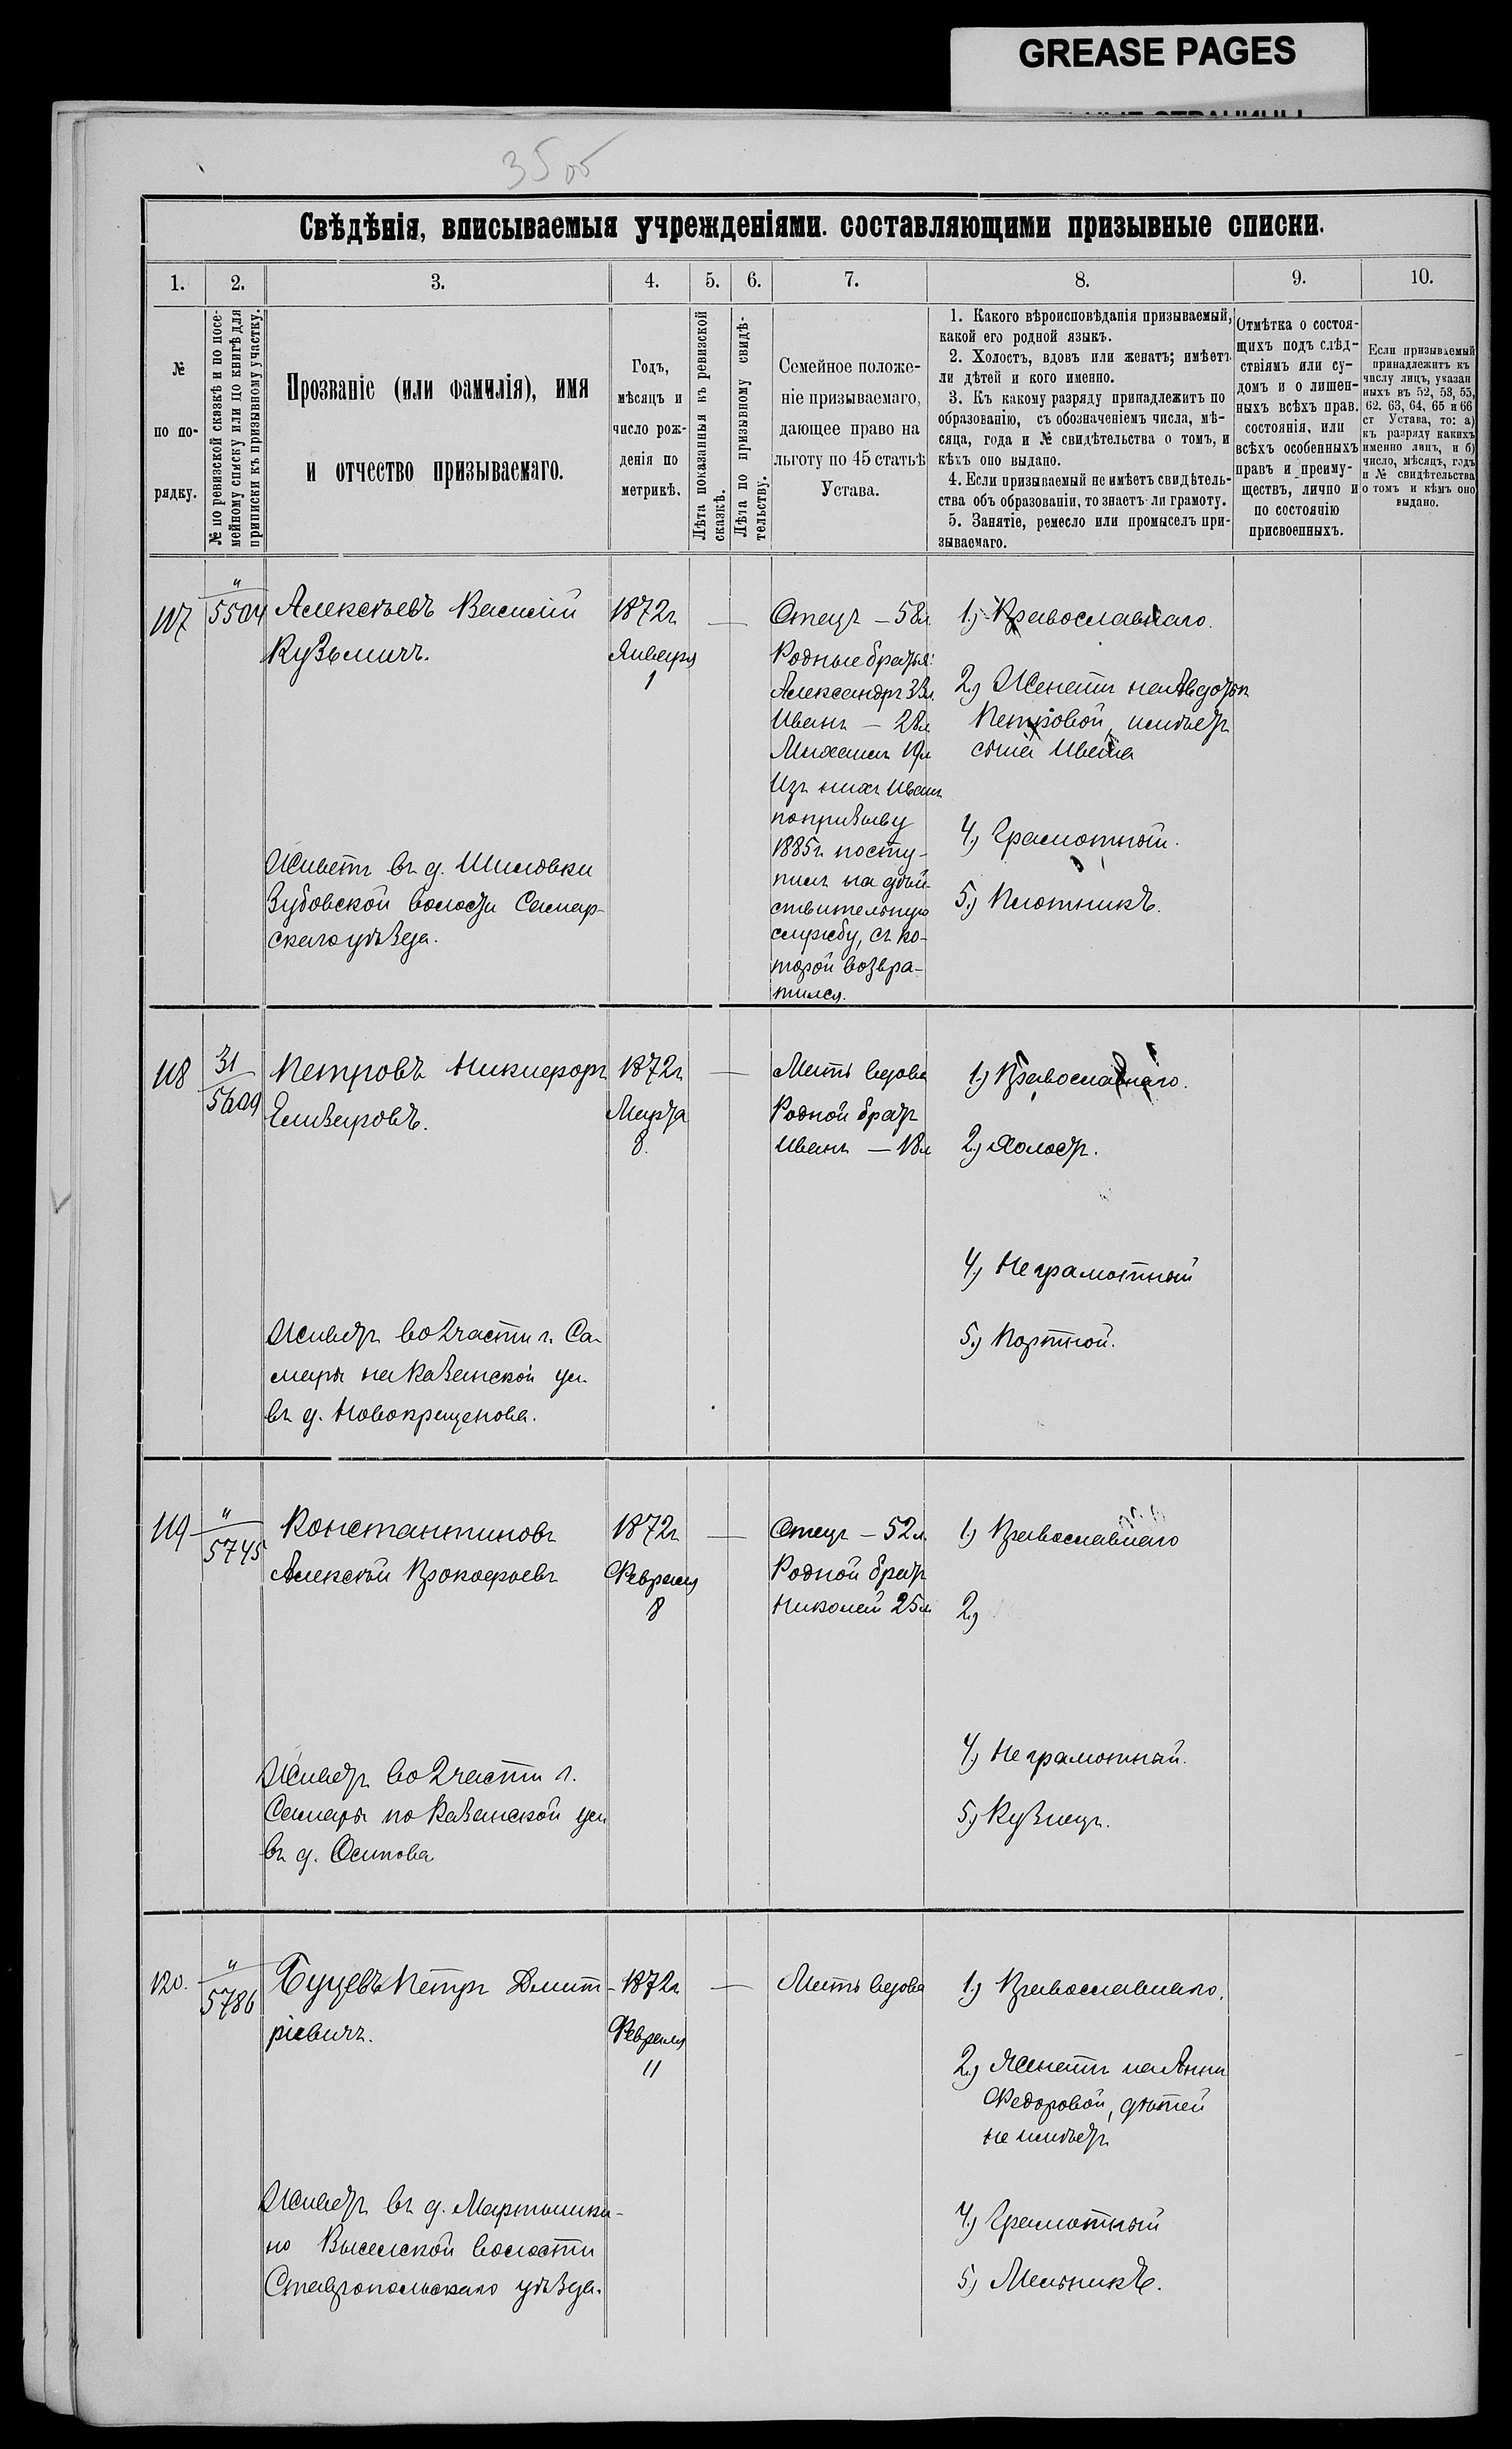 GREASE PAGES
35 об
Свѣдѣнія, вписываемыя учрежденіями. составляющими призывные списки.
1. 2. 3. 4. 5. 6. 7. 8. 9. 10.
№
по по-
рядку.
№ по ревизской сказкѣ и по посе-
мейному списку или по книгѣ для
приписки къ призывному участку.
Прозваніе (или фамилія), имя
и отчество призываемаго.
Годъ,
мѣсяцъ и
число рож-
денія по
метрикѣ.
Лѣта показанныя къ ревизской
сказкѣ.
Лѣта по призывному свидѣ-
тельству.
Семейное положе-
ніе призываемаго,
дающее право на
льготу по 45 статьѣ
Устава.
1. Какого вѣроисповѣданія призываемый,
какой его родной языкъ.
2. Холостъ, вдовъ или женатъ; имѣетъ
ли дѣтей и кого именно.
3. Къ какому разряду принадлежитъ по
образованію, съ обозначеніемъ числа, мѣ-
сяца, года и № свидѣтельства о томъ, и
кѣмъ оно выдано.
4. Если призываемый не имѣетъ свидѣтель-
ства объ образованіи, то знаетъ-ли грамоту.
5. Занятіе, ремесло или промыселъ при-
зываемаго.
Отмѣтка о состоя-
щихъ подъ слѣд-
ствіямъ или су-
домъ и о лишен-
ныхъ всѣхъ прав.
состоянія, или
всѣхъ особенныхъ
правъ и преиму-
ществъ, лично и
по состоянію
присвоенныхъ.
Если призываемый
принадлежитъ къ
числу лицъ, указан
ныхъ въ 52, 53, 55,
62. 63, 64, 65 и 66
ст Устава, то: а)
къ разряду какихъ
именно лицъ, и б)
число, мѣсяцъ, годъ
и № свидѣтельства
о томъ и кѣмъ оно
выдано.
117
"
5504
Алексѣевъ Василій
Кузьмичъ.
Живетъ въ д. Шиловки
Зубовской волости Самар-
скаго уѣзда.
1872г
Января
1
—
Отецъ — 58л
Родные братья:
Александръ 33л.
Иванъ — 28л
Михаилъ 19л
Изъ нихъ Иванъ
по призыву
1885г. посту-
пилъ на дѣй-
ствительную
службу, съ ко-
торой возвра-
тился.
1.) Православнаго.
2.) Женатъ на Авдотьи
Петровой, имѣетъ
сына Ивана
4.) Грамотный.
5.) Плотникъ.
118
31
5609
Петровъ Никифоръ
Елизаровъ.
Живетъ во 2 части г. Са-
мары на Казанской ул.
въ д. Новокрещенова.
1872г
Марта
8.
—
Мать вдова
Родной братъ
Иванъ — 18л
1.) Православнаго.
2.) Холостъ.
4.) Неграмотный
5.) Портной.
119
"
5745
Константиновъ
Алексѣй Прокофьевъ
Живетъ во 2 части г.
Самары по Казанской ул
въ д. Осипова
1872г
Февраля
8
—
Отецъ — 52л.
Родной братъ
Николай 25л
1.) Православнаго
2.)
4.) Неграмотный.
5.) Кузнецъ.
120.
"
5786
Буцевъ Петръ Дмит-
ріевичъ.
Живетъ въ д. Мартышки-
но Выселской волости
Ставропольскаго уѣзда.
1872г
Февраля
11
—
Мать вдова
1.) Православнаго.
2.) Женатъ на Анни
Федоровой, дѣтей
не имѣетъ
4.) Грамотный
5.) Мельникъ.